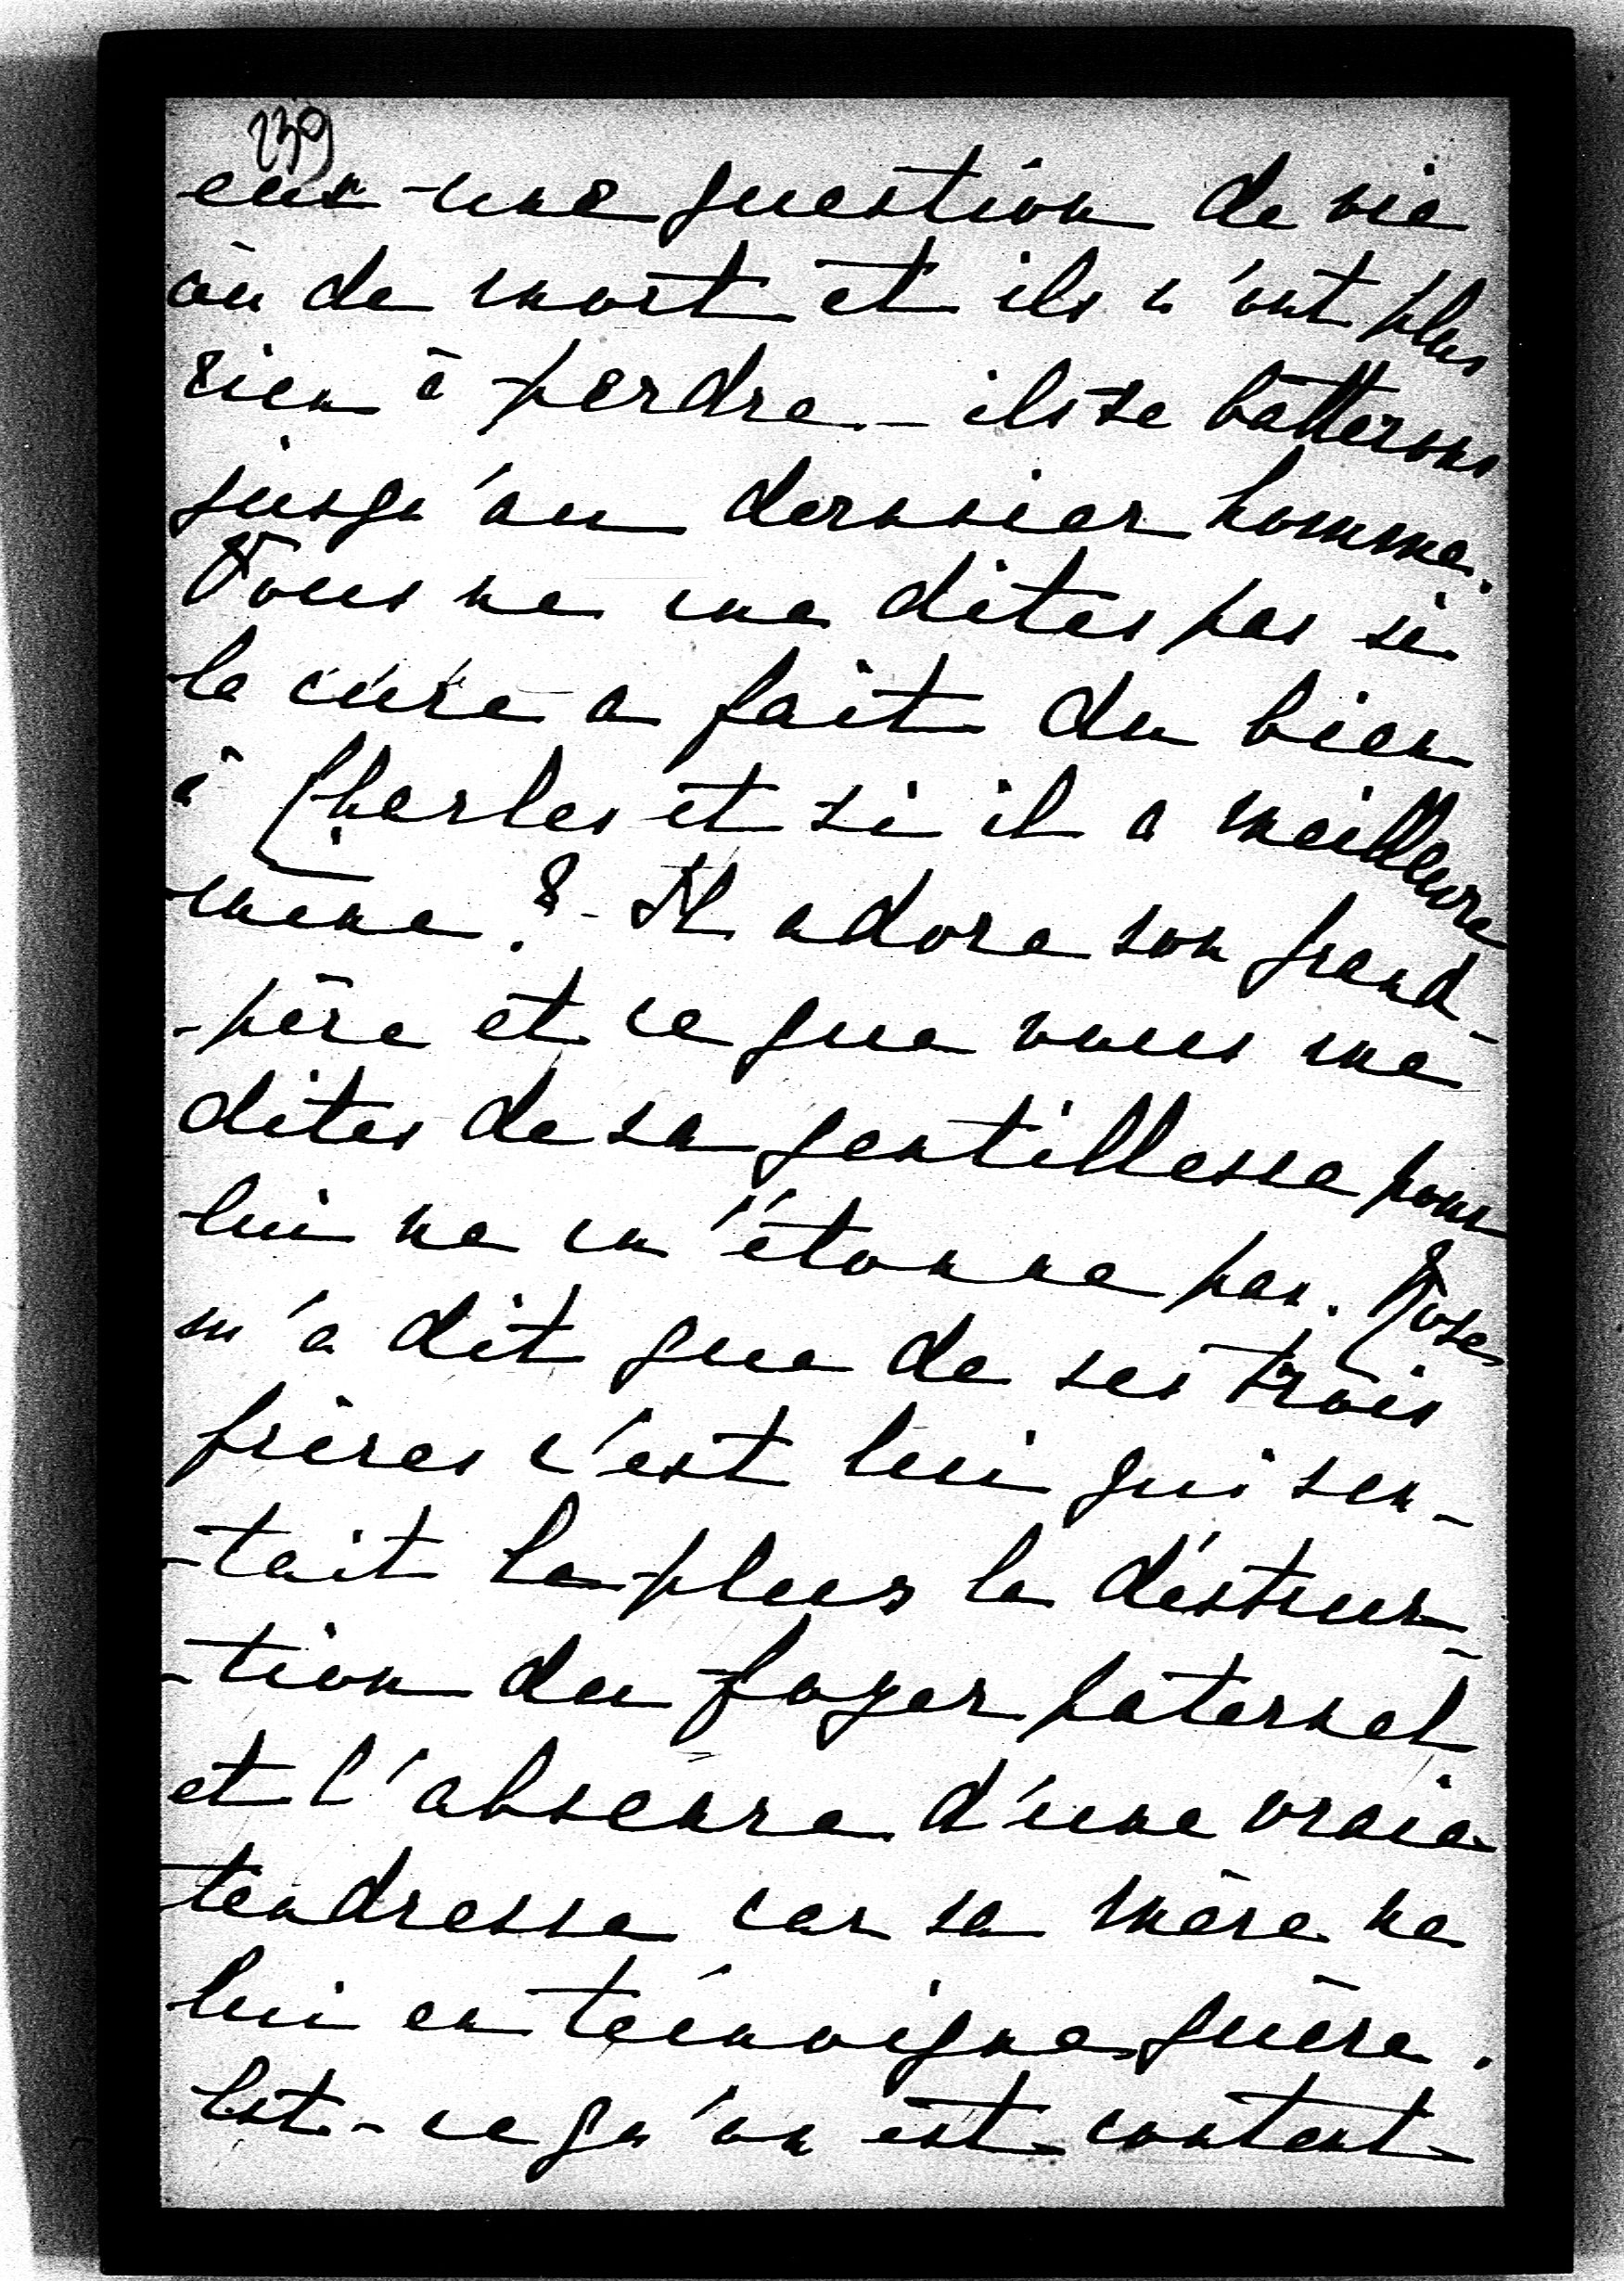 239
eux une question de vie
ou de mort et ils n'ont plus
rien à perdre - ils se batterons
jusqu'au dernnier homme.
Vous ne me dites pas si
la cure a fait du bien
à Charles et si il a meilleure
mine ? - Il adore son grand-
-père et ce que vous me
dites de sa gentillesse pour
lui ne m'étonne pas.
m'a dit que de ses trois
frères c'est lui qui sen-
-tait le plus la déstruc-
-tion du foyer paternel
et l'absence d'une vraie
tendresse car sa mère ne
lui en témoigne guère.
Est-ce qu'on est content